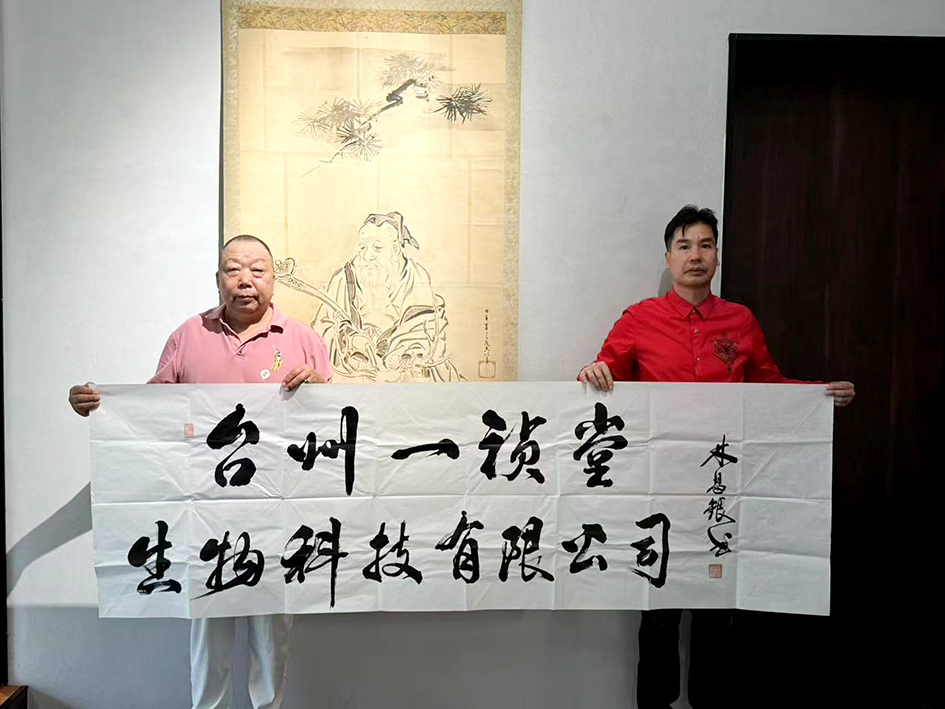 台州一祯堂
生物科技有限公司
林昌银书